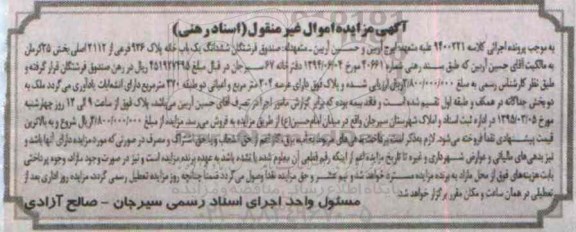 آگهی مزایده اموال غیر منقول (اسناد رهنی)
به موجب پرونده اجرائی کلاسه ۹۴۰۰۲۲۱ علیه متعهد: ایرج آریین و حسین آریین ـ متعهدله: صندوق فرشتگان ششدانگ یک باب خانه پلاک ۹۳۶ فرعی از ۲۱۱۲ اصلی بخش ۲۵کرمان
به مالکیت آقای حسین آریین که طبق سند رهنی شماره ۳۰۶۶۱ مورخ ۱۳۹۴/۰۶/۰۴ دفترخانه ۶۷ سیرجان در قبال مبلغ ۴۵۱۹۲۷۴۹۵ ریال در رهن صندوق فرشتگان قرار گرفته و
طبق نظر کارشناس رسمی به مبلغ ۳/۸۰۰/۰۰۰/۰۰۰ ریال ارزیابی شده و پلاک فوق دارای عرصه ۳۰۴ متر مربع و اعیانی دو طبقه ۳۲۰ مترمربع دارای انشعابات یادآوری می گردد ملک به
دو بخش جداگانه در همکف و طبقه اول تقسیم شده است و فاقد بیمه بوده که برابر گزارش مامور اجرا در تصرف آقای حسین آریین می باشد. پلاک فوق از ساعت ۹ الی ۱۲ روز چهارشنبه
مورخ ۱۳۹۵/۰۳/۰۵ در اداره ثبت اسناد و املاک شهرستان سیرجان واقع در میدان امام حسین(ع) از طریق مزایده به فروش می رسد. مزایده از مبلغ ۳/۸۰۰/۰۰۰/۰۰۰ ریال شروع و به بالاترین
قیمت پیشنهادی نقداً فروخته می شود. لازم بذکر است پرداخت بدهی های مربوط به آب، برق، گاز اعم از حق انشعاب و یا حق اشتراک و مصرف در صورتی که مورد مزایده دارای آنها باشد و
نیز بدهی های مالیاتی و عوارض شهرداری و غیره تا تاریخ مزایده اعم از اینکه رقم قطعی آن معلوم شده یا نشده باشد به عهده برنده مزایده است و نیز در صورت وجود مازاد، وجوه پرداختی
بابت هزینه های فوق از محل مازاد به برنده مزایده مسترد خواهد شد و نیم عشر و حق مزایده نقداً وصول می گردد ضمناً چنانچه روز مزایده تعطیل رسمی گردد، مزایده روز اداری بعد از
تعطیلی در همان ساعت و مکان مقرر برگزار خواهد شد.
مسئول واحد اجرای اسناد رسمی سیرجان – صالح آزادی